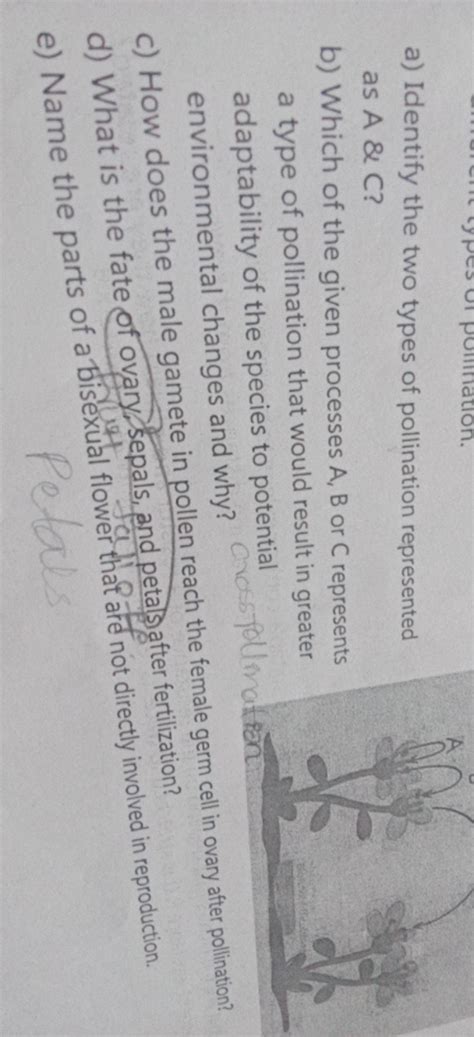 types of pollination.
a) Identify the two types of pollination represented
as A & C?
b) Which of the given processes A, B or C represents
a type of pollination that would result in greater
adaptability of the species to potential
environmental changes and why?
cross pollination
c) How does the male gamete in pollen reach the female germ cell in ovary after pollination?
d) What is the fate of ovary, sepals, and petals after fertilization?
e) Name the parts of a bisexual flower that are not directly involved in reproduction.
Petals
A